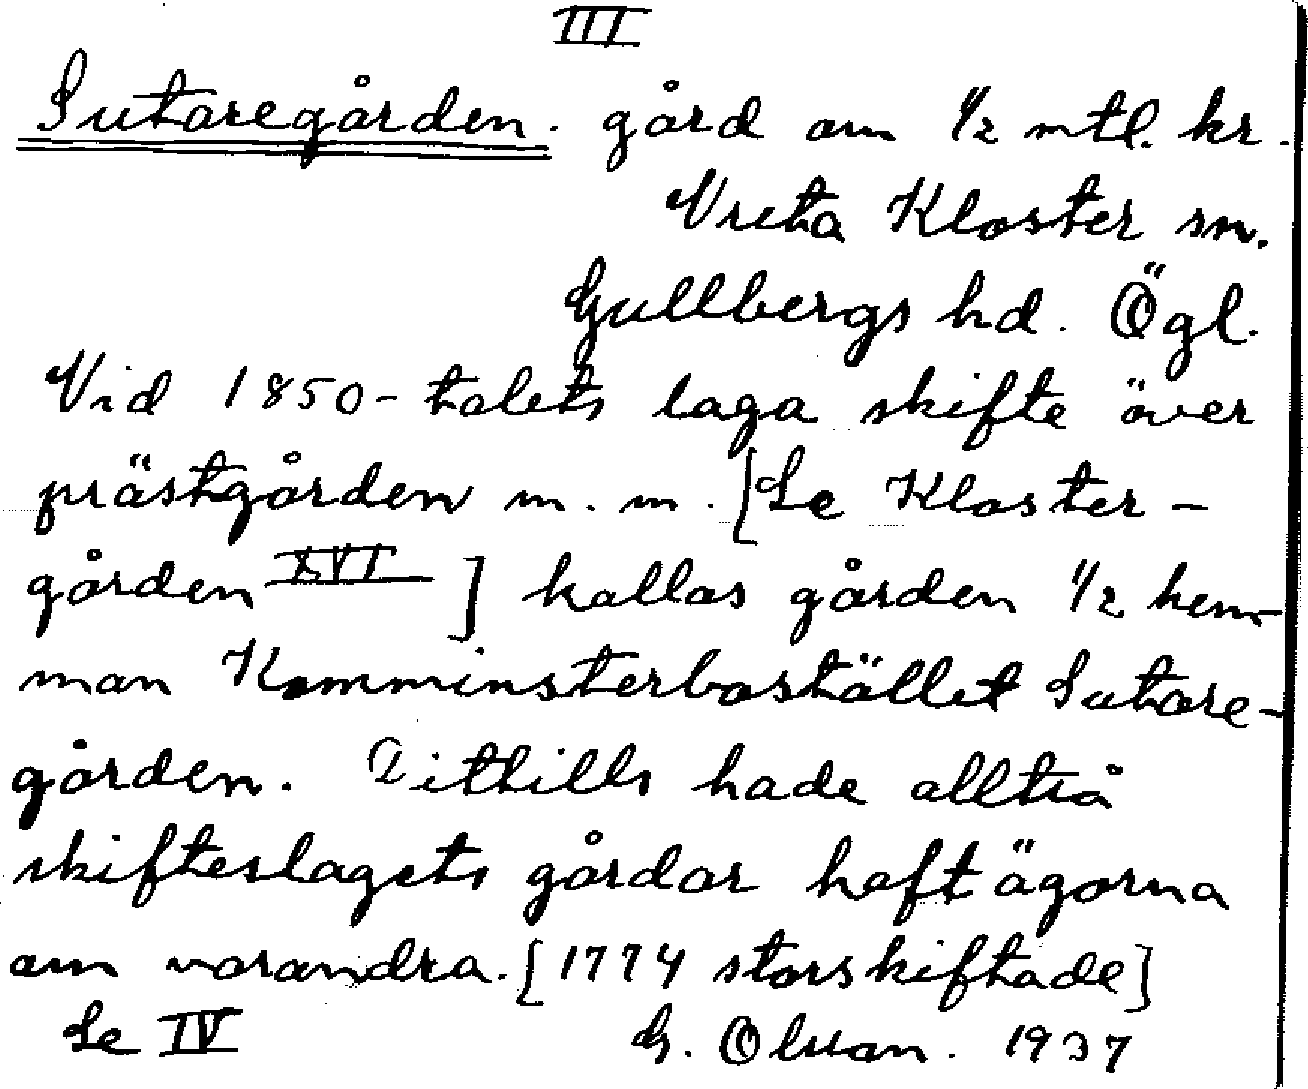 III
Sutaregården. gård om 1/2 mtl. kr.
Vreta Kloster sn.
Gullbergs hd. Ögl.
Vid 1850-talets laga skifte över
prästgården m.m. [Se Kloster-
gården XVI ] kallas gården 1/2 hem-
man Komminsterbostället Sutare-
gården. Dittills hade alltså
skifteslagets gårdar haft ägorna
om varandra. [1774 storskiftade]
Se IV G. Olsson. 1937